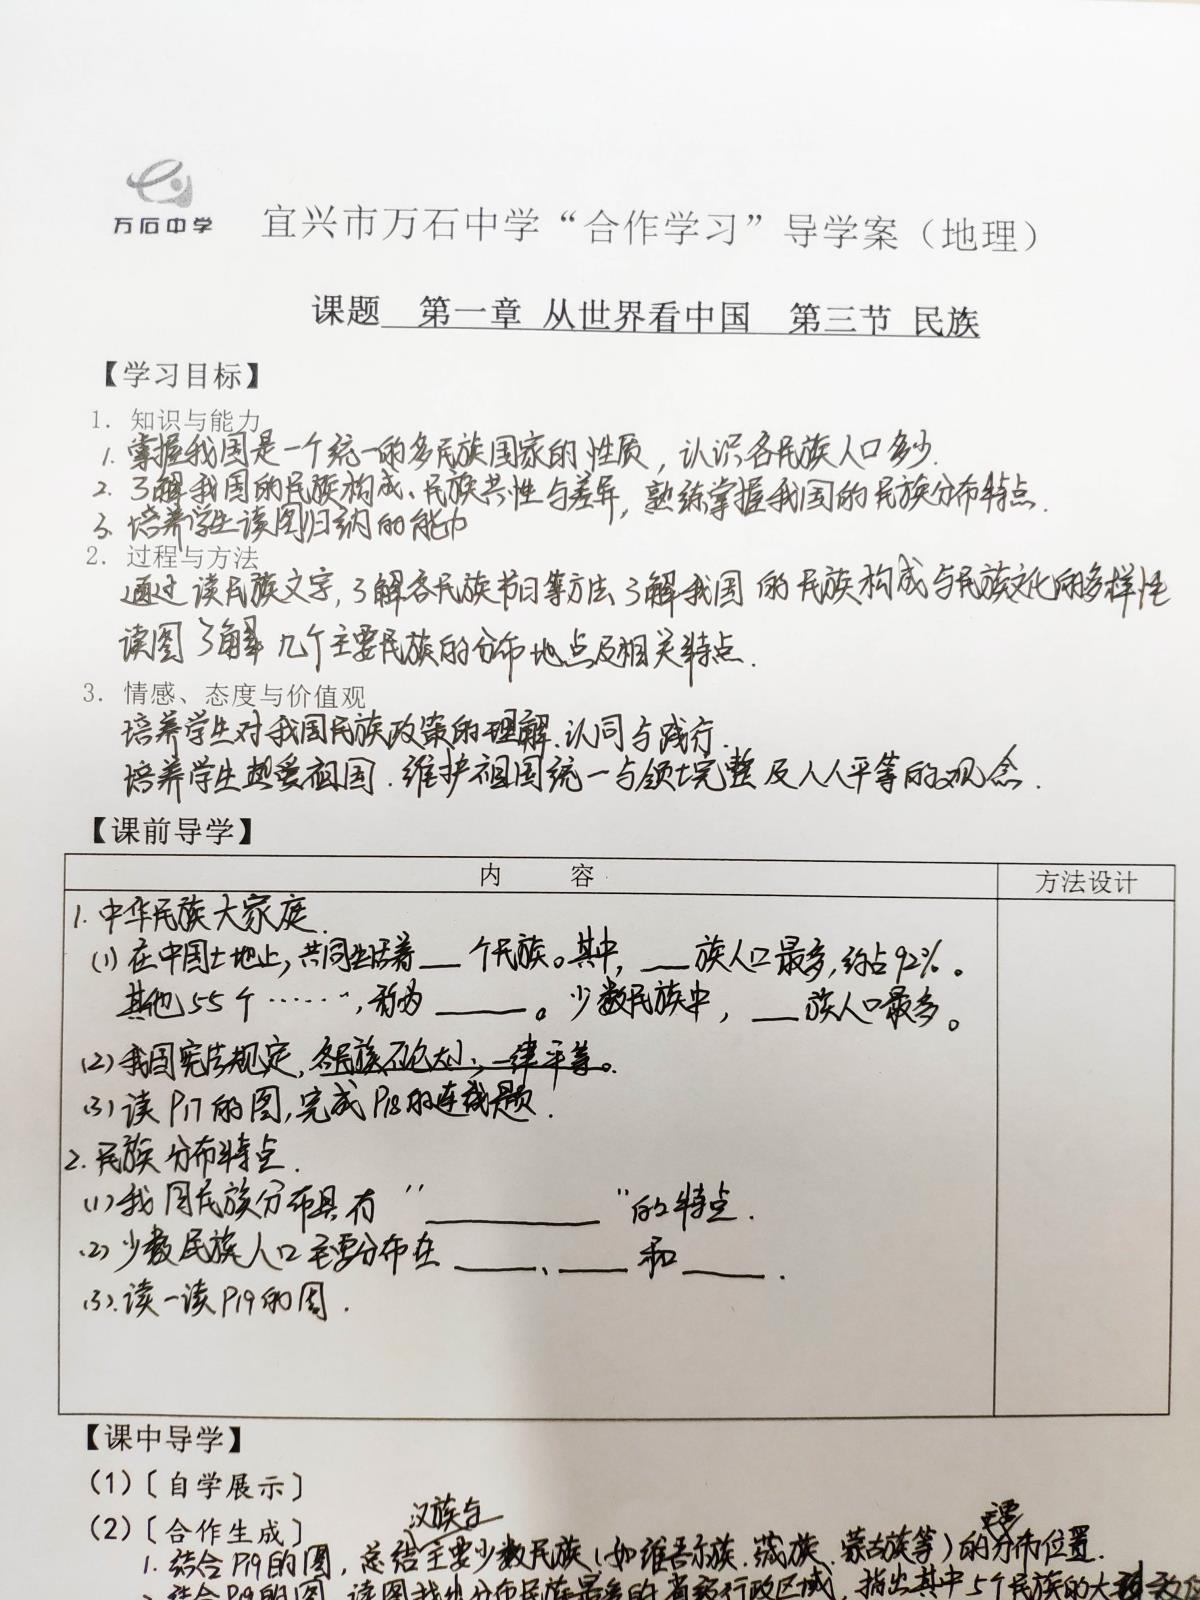 万石中学
宜兴市万石中学“合作学习”导学案（地理）
课题 第一章 从世界看中国 第三节 民族
【学习目标】
1. 知识与能力
1. 掌握我国是一个统一的多民族国家的性质，认识各民族人口多少.
2. 了解我国的民族构成、民族共性与差异，熟练掌握我国的民族分布特点.
3. 培养学生读图归纳的能力
2. 过程与方法
通过读民族文字，了解各民族节日等方法，了解我国的民族构成与民族文化的多样性
读图了解几个主要民族的分布地点及相关特点.
3. 情感、态度与价值观
培养学生对我国民族政策的理解、认同与践行.
培养学生热爱祖国.维护祖国统一与领土完整及人人平等的观念.
【课前导学】
内 容 方法设计
1. 中华民族大家庭.
(1) 在中国土地上，共同生活着__个民族。其中，__族人口最多，约占92%。
其他55个……，称为____。少数民族中，__族人口最多。
(2) 我国宪法规定，各民族不论大小，一律平等。
(3) 读P17的图，完成P18的连线题.
2. 民族分布特点.
(1) 我国民族分布具有“________”的特点.
(2) 少数民族人口主要分布在____、___和____.
(3). 读一读P19的图.
【课中导学】
(1)〔自学展示〕
(2)〔合作生成〕
汉族与 主要
1. 结合P19的图，总结主要少数民族（如维吾尔族.藏族.蒙古族等）的分布位置.
2. 结合P19的图，读图找出分布民族最多的省级行政区域，指出其中5个民族的大